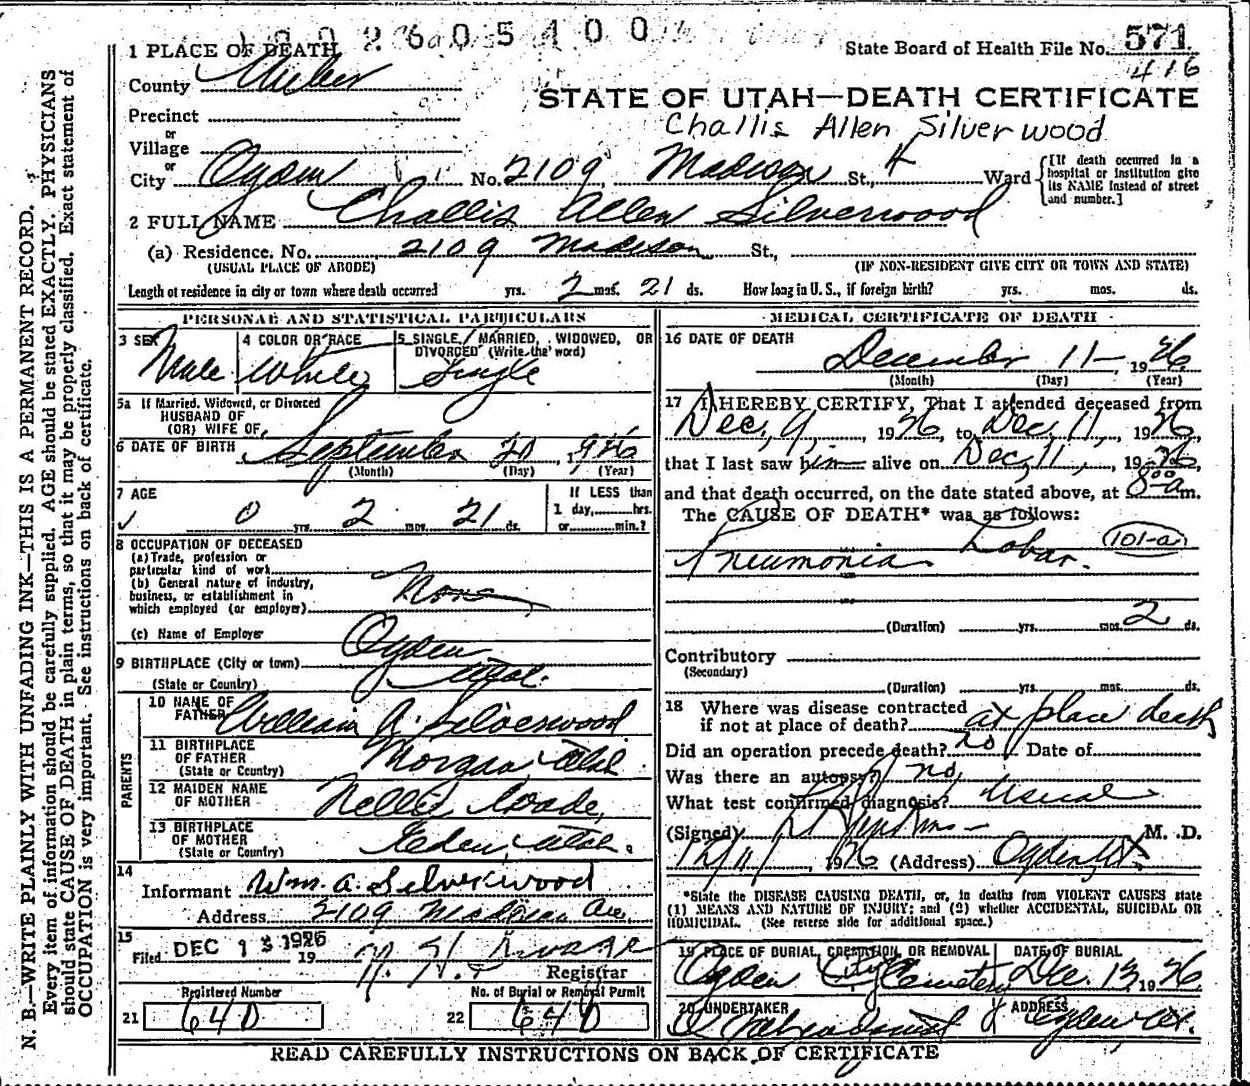 1902605400
1 PLACE OF DEATH
State Board of Health File No. 571
416
County Weber
STATE OF UTAH—DEATH CERTIFICATE
Precinct
Challis Allen Silverwood
or
Village
or
City Ogden No. 2109 Madison St., 4 Ward
[If death occurred in a hospital or institution give its NAME instead of street and number.]
2 FULL NAME Challis Allen Silverwood
(a) Residence. No. 2109 Madison St.,
(USUAL PLACE OF ABODE) (IF NON-RESIDENT GIVE CITY OR TOWN AND STATE)
Length of residence in city or town where death occurred yrs. 2 mos. 21 ds. How long in U. S., if foreign birth? yrs. mos. ds.
PERSONAL AND STATISTICAL PARTICULARS
3 SEX 4 COLOR OR RACE 5 SINGLE, MARRIED, WIDOWED, OR DIVORCED (Write the word)
Male White Single
5a If Married, Widowed, or Divorced
HUSBAND OF
(OR) WIFE OF
6 DATE OF BIRTH September 20, 1926
(Month) (Day) (Year)
7 AGE If LESS than
0 yrs. 2 mos. 21 ds. 1 day, hrs.
or min.?
8 OCCUPATION OF DECEASED
(a) Trade, profession or
particular kind of work
(b) General nature of industry,
business, or establishment in
which employed (or employer) None
(c) Name of Employer
9 BIRTHPLACE (City or town) Ogden
(State or Country) Utah.
PARENTS
10 NAME OF FATHER William A. Silverwood
11 BIRTHPLACE
OF FATHER Morgan Utah
(State or Country)
12 MAIDEN NAME
OF MOTHER Nellie Coade,
13 BIRTHPLACE
OF MOTHER Eden, Utah.
(State or Country)
14
Informant Wm. A. Silverwood
Address 2109 Madison Ave.
15
Filed DEC 13 1926 19
Registrar
Registered Number No. of Burial or Removal Permit
21 640 22 640
MEDICAL CERTIFICATE OF DEATH
16 DATE OF DEATH
December 11— 1926
(Month) (Day) (Year)
17 I HEREBY CERTIFY, That I attended deceased from
Dec, 9, 1926, to Dec, 11, 1926,
that I last saw him alive on Dec, 11, 1926,
and that death occurred, on the date stated above, at 8:00 a m.
The CAUSE OF DEATH* was as follows:
Pneumonia Lobar. 101-a
(Duration) yrs. mos. 2 ds.
Contributory
(Secondary)
(Duration) yrs. mos. ds.
18 Where was disease contracted
if not at place of death? at place death
Did an operation precede death? no Date of
Was there an autopsy? no
What test confirmed diagnosis? Usual
(Signed) M. D.
12/11/ 1926 (Address) Ogden Ut
*State the DISEASE CAUSING DEATH, or, in deaths from VIOLENT CAUSES state
(1) MEANS AND NATURE OF INJURY; and (2) whether ACCIDENTAL, SUICIDAL OR
HOMICIDAL. (See reverse side for additional space.)
19 PLACE OF BURIAL, CREMATION, OR REMOVAL DATE OF BURIAL
Ogden City Cemetery Dec. 13, 1926
20 UNDERTAKER ADDRESS
Ogden Ut.
READ CAREFULLY INSTRUCTIONS ON BACK OF CERTIFICATE
N. B.—WRITE PLAINLY WITH UNFADING INK—THIS IS A PERMANENT RECORD.
Every item of information should be carefully supplied. AGE should be stated EXACTLY. PHYSICIANS
should state CAUSE OF DEATH in plain terms, so that it may be properly classified. Exact statement of
OCCUPATION is very important. See instructions on back of certificate.